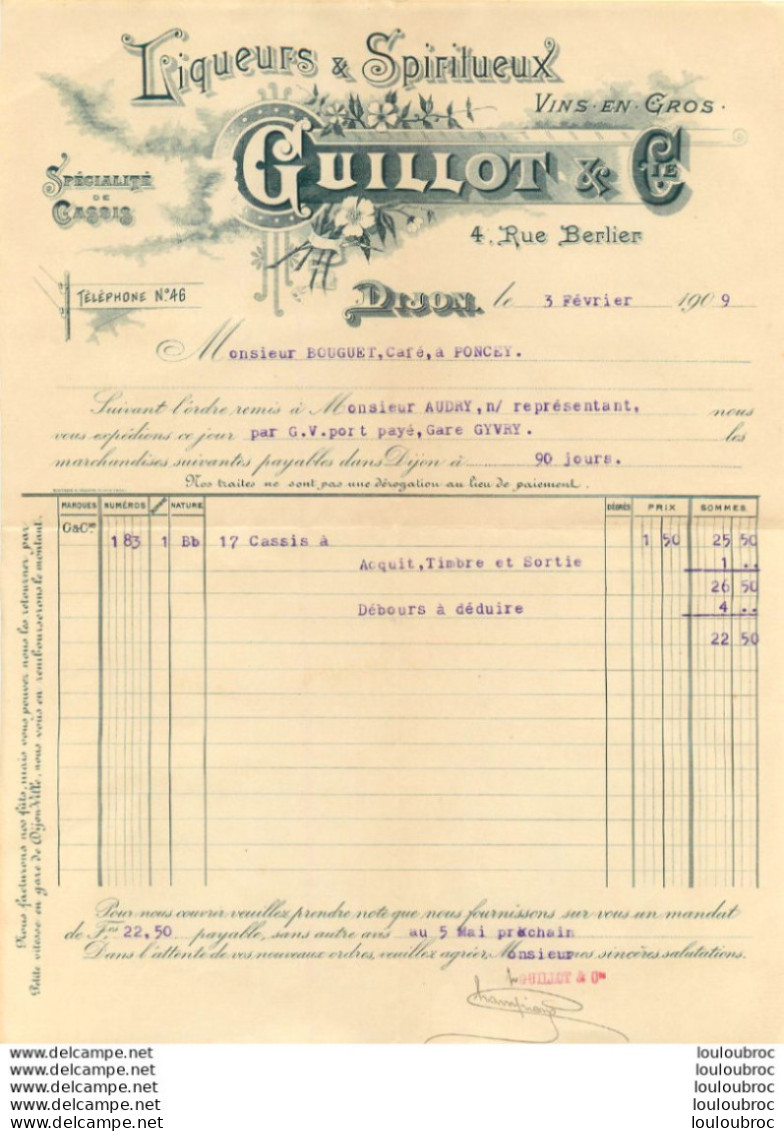 Liqueurs & Spiritueux
VINS-EN-GROS.
GUILLOT & CIE
SPÉCIALITÉ
DE
CASSIS
4, Rue Berlier
TÉLÉPHONE N° 46
DIJON, le 3 Février 1909
Monsieur BOUGUET, Café, à PONCEY.
Suivant l'ordre remis à Monsieur AUDRY, n/ représentant, nous
vous expédions ce jour par G.V.port payé, Gare GYVRY. les
marchandises suivantes payables dans Dijon à 90 jours.
Nos traites ne sont pas une dérogation au lieu de paiement.
MARQUES NUMÉROS NATURE DEGRÉS PRIX SOMMES
G&Cie
183 1 Bb 17 Cassis à 1 50 25 50
Acquit, Timbre et Sortie 1 ..
26 50
Débours à déduire 4 ..
22 50
Nous facturons nos fûts, mais vous pouvez nous les retourner par
Petite vitesse en gare de Dijon-Ville, nous vous en rembourserons le montant.
Pour nous couvrir veuillez prendre note que nous fournissons sur vous un mandat
de Frs 22,50 payable, sans autre avis au 5 Mai prochain
Dans l'attente de vos nouveaux ordres, veuillez agréer, Monsieur nos sincères salutations.
GUILLOT & Cie
www.delcampe.net louloubroc
www.delcampe.net louloubroc
www.delcampe.net louloubroc
www.delcampe.net louloubroc
www.delcampe.net louloubroc